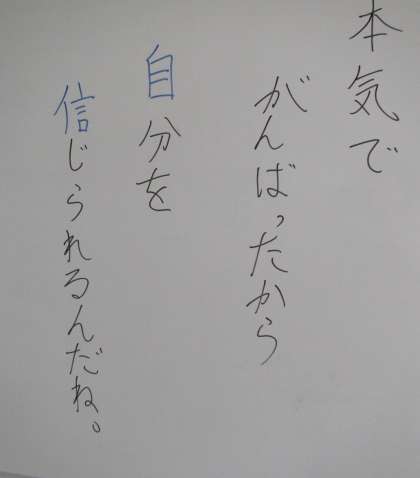 本気で
がんばったから
自分を
信じられるんだね。